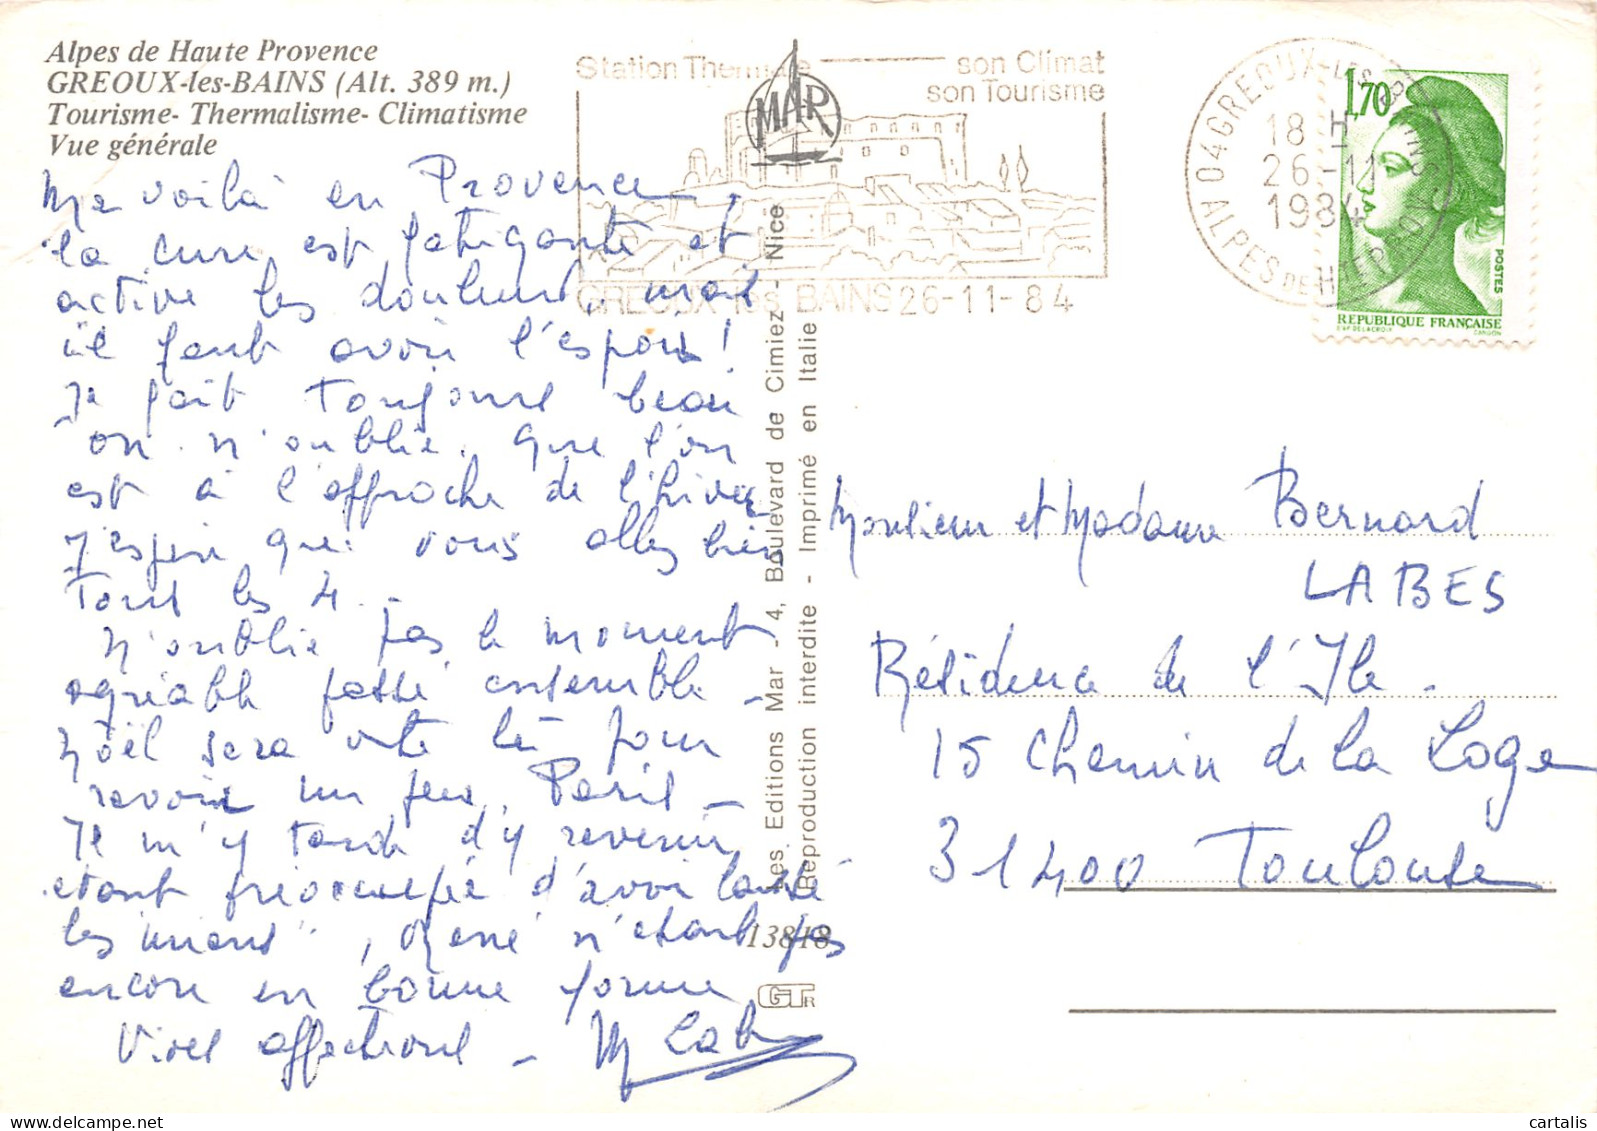 Alpes de Haute Provence
GREOUX-les-BAINS (Alt. 389 m.)
Tourisme- Thermalisme- Climatisme
Vue générale
Station Thermale
son Climat
son Tourisme
MAR
GREOUX-les-BAINS 26-11-84
04 GREOUX-LES-BAINS
18 H
26-11
1984
ALPES DE HTE PROV.
1,70
POSTES
REPUBLIQUE FRANÇAISE
D'AP. DELACROIX
GANDON
Me voilà en Provence,
la cure est fatigante et
active les douleurs, mais
il faut avoir l'espoir!
Il fait toujours beau
on n'oublie que l'on
est à l'approche de l'hiver
J'espère que vous allez bien
Tous les 4.
N'oublie pas le moment
agréable passé ensemble -
Noël sera vite là pour
revoir un peu Paris -
Il m'y tarde d'y revenir
étant préoccupée d'avoir laissé
les miens", René n'étant pas
encore en bonne forme
Vives affections - M Lab
Les Editions Mar - 4, Boulevard de Cimiez - Nice
Reproduction interdite - Imprimé en Italie
13818
GTR
Monsieur et Madame Bernard
LABES
Résidence de l'Ile -
15 Chemin de la Loge
31400 Toulouse
cartalis